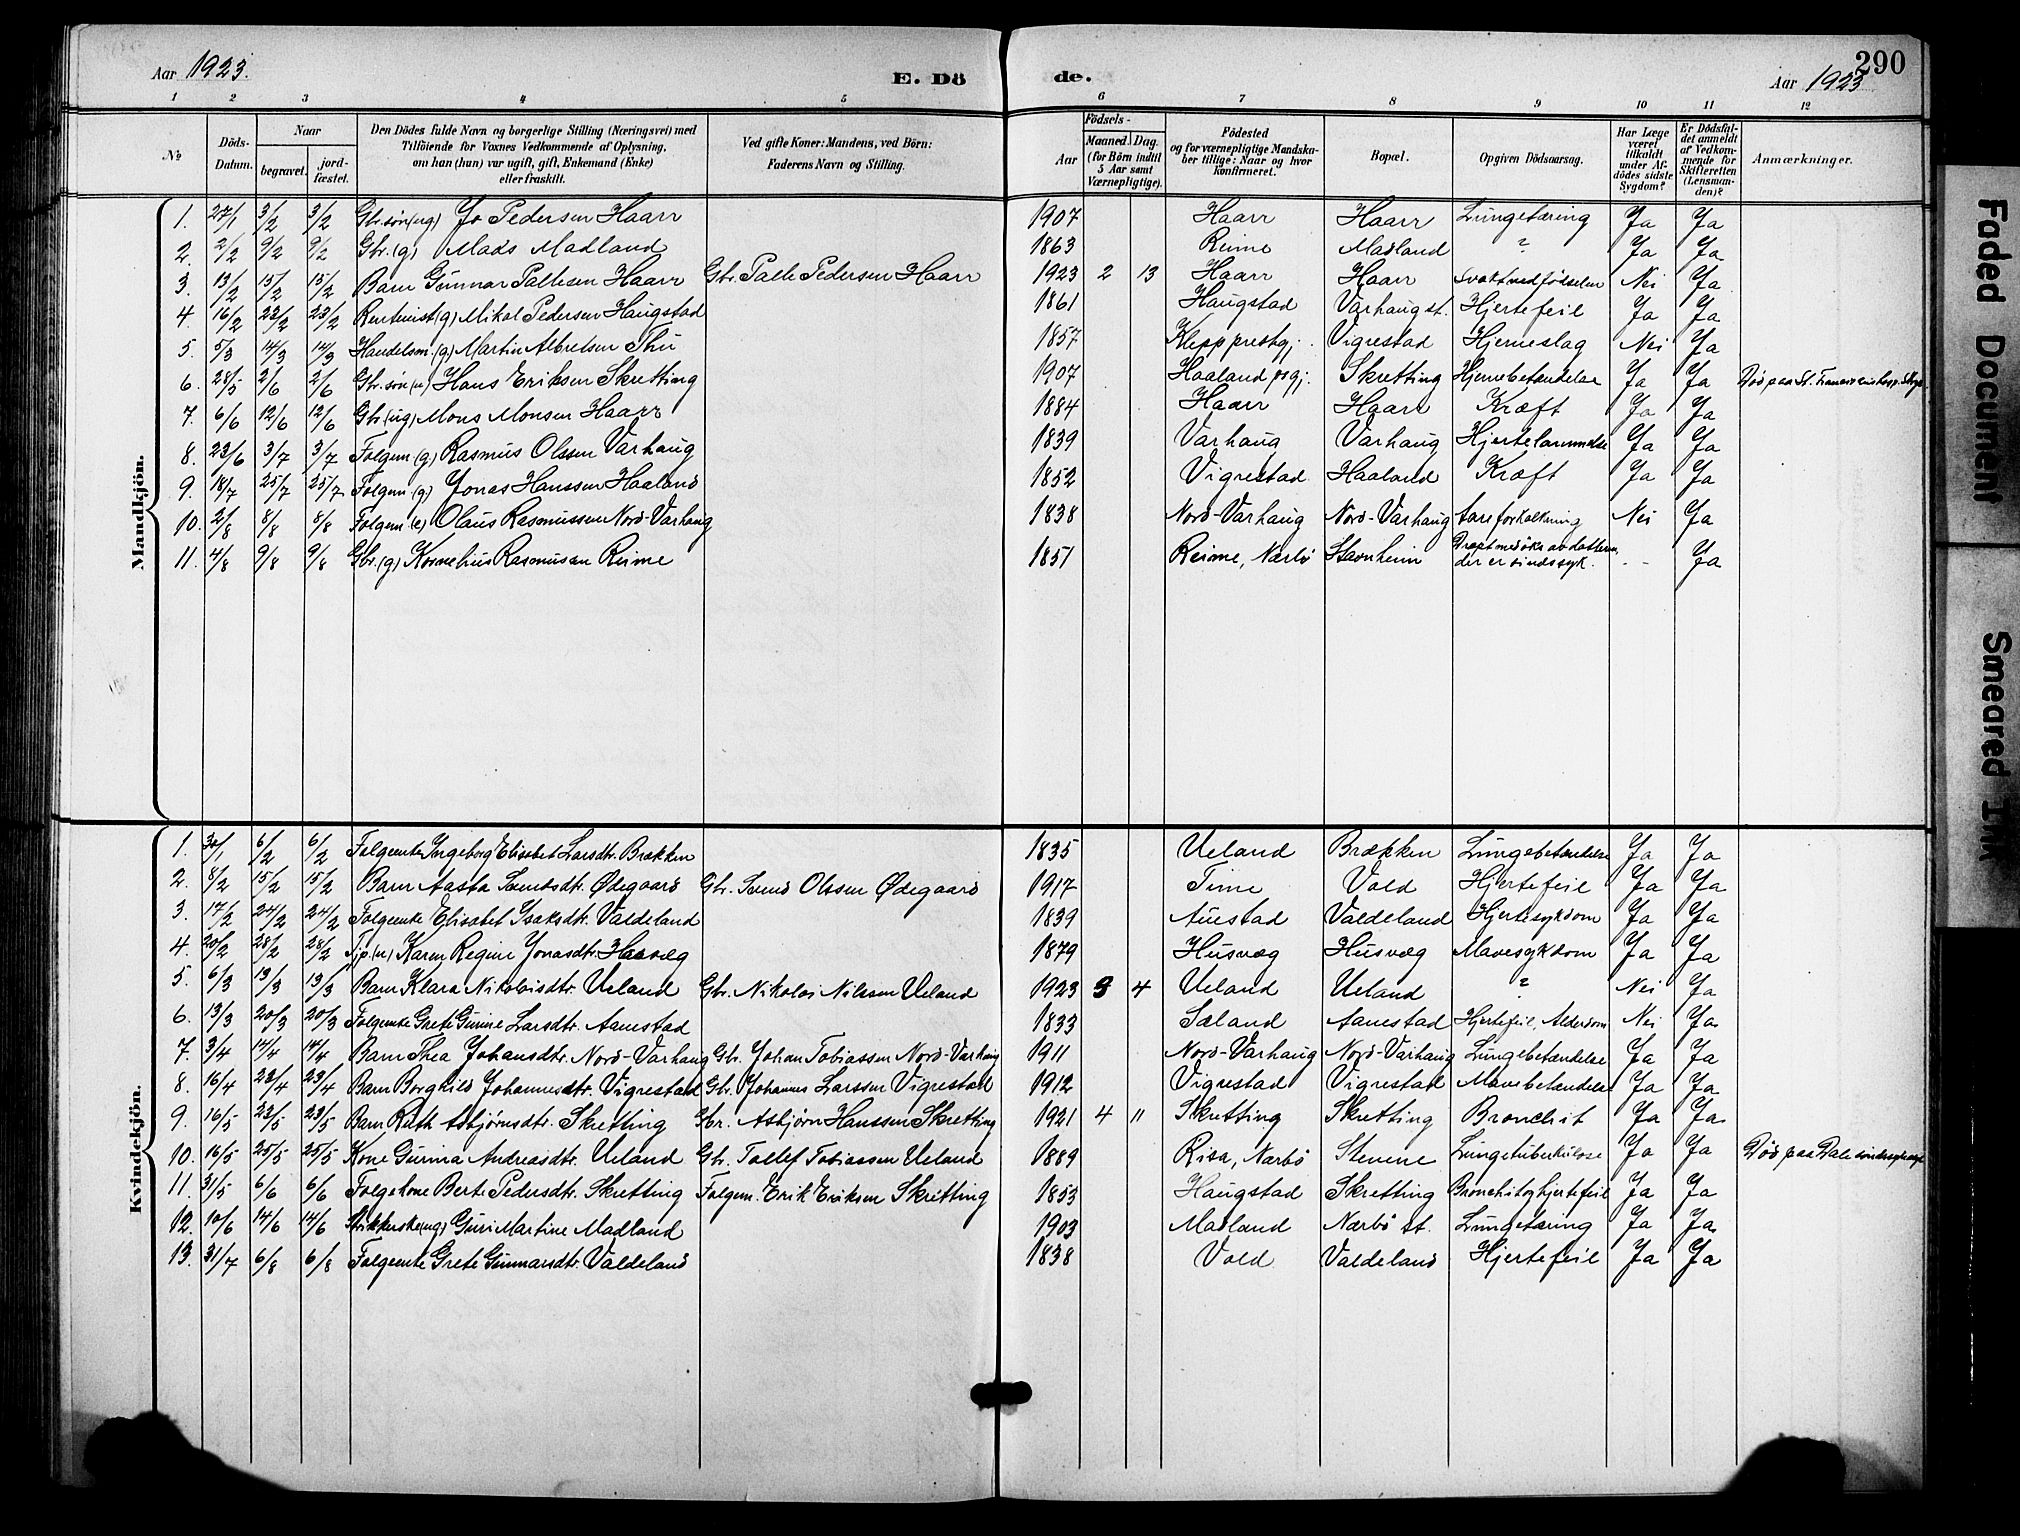 Aar 1923.
E. Dö de.
290
Aar 1923
1 2 3 4 5 6 7 8 9 10 11 12
No
Döds-Datum.
Naar
begravet.
jord-fæstet.
Den Dödes fulde Navn og borgerlige Stilling (Næringsvei) med
Tilföiende for Voxnes Vedkommende af Oplysning,
om han (hun) var ugift, gift, Enkemand (Enke)
eller fraskilt.
Ved gifte Koner: Mandens, ved Börn:
Faderens Navn og Stilling.
Födsels-
Aar
Maaned. Dag.
(for Börn indtil
5 Aar samt
Værnepligtige).
Födested
og for værnepligtige Mandska-
ber tillige: Naar og hvor
konfirmeret.
Bopæl.
Opgiven Dödsaarsag.
Har Læge
været
tilkaldt
under Af-
dödes sidste
Sygdom?
Er Dödsfal-
det anmeldt
af Vedkom-
mende for
Skifteretten
(Lensman-
den)?
Anmærkninger.
Mandkjön.
1. 27/1 3/2 3/2 Gbr.søn (ug) Jo Pedersen Haarr 1907 Haarr Haarr Lungetæring Ja Ja
2. 2/2 9/2 9/2 Gbr. (g) Mads Madland 1863 Reime Madland ? Ja Ja
3. 13/2 15/2 15/2 Barn Gunnar Pallesen Haarr Gbr. Palle Pedersen Haarr 1923 2 13 Haarr Haarr Svakt ved fødselen Nei Ja
4. 16/2 23/2 23/2 Rentenist (g) Mikal Pedersen Haugstad 1861 Haugstad Varhaug st. Hjertefeil Ja Ja
5. 5/3 14/3 14/3 Handelsm. (g) Martin Albretsen Thu 1857 Klepp prestgj. Vigrestad Hjerneslag Nei Ja
6. 28/5 2/6 2/6 Gbr. søn (u) Hans Eriksen Skretting 1907 Haaland psgj. Skretting Hjernebetændelse Ja Ja Død paa St.
7. 6/6 12/6 12/6 Gbr. (ug) Mons Monsen Haarr 1884 Haarr Haarr Kræft Ja Ja
8. 23/6 3/7 3/7 Følgem (g.) Rasmus Olssen Varhaug 1839 Varhaug Varhaug Hjertelammelse Ja Ja
9. 18/7 25/7 25/7. Følgem (g) Jonas Hanssen Haaland 1852 Vigrestad Haaland Kræft Ja Ja
10. 2/8 8/8 8/8 Følgem (e) Olaus Rasmussen Nord-Varhaug 1838 Nord-Varhaug Nord-Varhaug Aareforkalkning Nei Ja
11. 4/8 9/8 9/8 Gbr. (g) Kornelius Rasmussen Reime 1851 Reime, Nærbø Stavnheim Dræpt med øks av datteren,
der er sindssyk. - - Ja
Kvindekjön.
1. 30/1 6/2 6/2 Følgeenke Ingeborg Elisabet Larsdtr. Brækken 1835 Ueland Brækken Lungebetændelse Ja Ja
2. 8/2 15/2 15/2 Barn Aasta Svendsdtr. Ødegaard Gbr. Svend Olssen Ødegaard 1917 Time Vold Hjertefeil Ja Ja
3. 17/2 24/2 24/2 Følgeenke Elisabet Isaksdtr. Valdeland 1839 Auestad Valdeland Hjertesykdom Ja Ja
4. 20/2 28/2 28/2 (u) Karen Regine Jonasdtr. 1879 Husvæg Husvæg Mavesykdom Ja Ja
5. 6/3 13/3 13/3 Barn Klara Nikolaisdtr. Ueland Gbr. Nikolai Nilssen Ueland 1923 3 4 Ueland Ueland ? Nei Ja
6. 13/3 20/3 20/3 Følgeenke Grete Gurine Larsdtr. Aanestad 1833 Sæland Aanestad Hjertefeil, Alderdom Nei Ja
7. 3/4 14/4 14/4 Barn Thea Johansdtr. Nord-Varhaug Gbr. Johan Tobiassen Nord-Varhaug 1911 Nord-Varhaug Nord-Varhaug Lungebetændelse Ja Ja
8. 16/4 23/4 23/4 Barn Borghild Johannesdtr. Vigrestad Gbr. Johannes Larssen Vigrestad 1912 Vigrestad Vigrestad Mavebetændelse Ja Ja
9. 16/5 23/5 23/5 Barn Ruth Asbjørnsdtr. Skretting Gbr. Asbjørn Hanssen Skretting 1921 4 11 Skretting Skretting Bronchit Ja Ja
10. 16/5 25/5 25/5 Kone Gurina Andreasdtr. Ueland Gbr. Tollef Tobiassen Ueland 1889 Risa, Nærbø Stenene Lungetuberkulose Ja Ja Død paa Dale sindssykeasyl
11. 31/5 6/6 6/6 Følgekone Berte Pedersdtr. Skretting Følgem. Erik Eriksen Skretting 1853 Haugstad Skretting Bronchit og hjertefeil Ja Ja
12. 10/6 14/6 14/6 (ug) Guri Martine Madland 1903 Madland Nærbø st. Lungetæring Ja Ja
13. 31/7 6/8 6/8 Følgeenke Grete Gunnarsdtr. Valdeland 1838 Vold Valdeland Hjertefeil Ja Ja
Faded Document
Smeared Ink